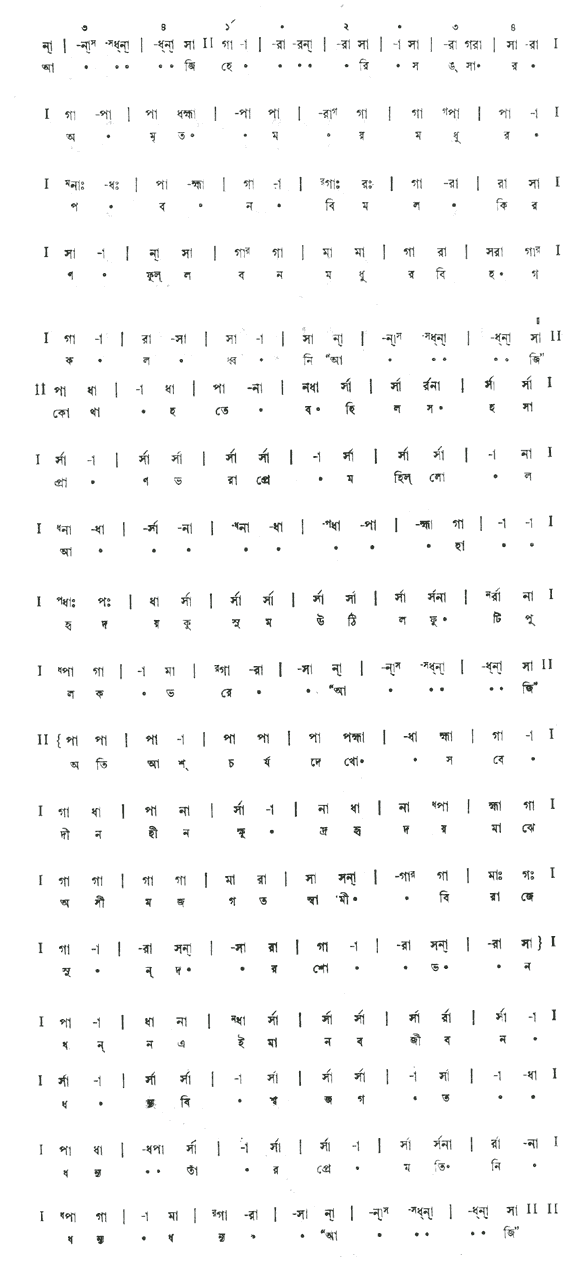 ৩ ৪ ১´ • ২ • ৩ ৪
ন়া | -ন়াস -সধ়ন়া | -ধ়ন়া সা II গা -া | -রা -রন়া | -রা সা | -া সা | -রা গরা | সা -রা I
আ • •• •• জি হে • • •• • রি • স ঙ্ সা• র •
I গা -পা | পা ধহ্মা | -পা পা | -রাগ গা | গা গপা | পা -া I
অ • মৃ ত• • ম • র ম ধু র •
I মনাঃ -ধঃ | পা -হ্মা | গা -া | রগাঃ রঃ | গা -রা | রা সা I
প • ব • ন • বি ম ল • কি র
I সা -া | ন়া সা | গার গা | মা মা | গা রা | সরা গার I
ণ • ফুল্ ল ব ন ম ধু র বি হ• গ
৪
I গা -া | রা -সা | সা -া | সা ন়া | -ন়াস -সধ়ন়া | -ধ়ন়া সা II
ক • ল • ধ্ব • নি "আ • •• •• জি"
II পা ধা | -া ধা | পা -না | নধা র্সা | র্সা র্রনা | র্সা র্সা I
কো থা • হ তে • ব• হি ল স• হ সা
I র্সা -া | র্সা র্সা | র্সা র্সা | -া র্সা | র্সা র্সা | -া না I
প্রা • ণ ভ রা প্রে • ম হিল্ লো • ল
I ধনা -ধা | -র্সা -না | -ধনা -ধা | -পধা -পা | -হ্মা গা | -া -া I
আ • • • • • • • • হা • •
I পধাঃ পঃ | ধা র্সা | র্সা র্সা | র্সা র্সা | র্সা র্সনা | নর্রা না I
হৃ দ য় কু সু ম উ ঠি ল ফু• টি পু
I ধপা গা | -া মা | রগা -রা | -সা ন়া | -ন়াস -সধ়ন়া | -ধ়ন়া সা II
ল ক • ভ রে • • "আ • •• •• জি"
II { পা পা | পা -া | পা পা | পা পহ্মা | -ধা হ্মা | গা -া I
অ তি আ শ্ চ র্য দে খো• • স বে •
I গা ধা | পা না | র্সা -া | না ধা | না ধপা | হ্মা গা I
দী ন হী ন ক্ষু • দ্র হৃ দ য় মা ঝে
I গা গা | গা গা | মা রা | সা সন়া | -গার গা | মাঃ গঃ I
অ সী ম জ গ ত স্বা মী• • বি রা জে
I গা -া | -রা সন়া | -সা রা | গা -া | -রা সন়া | -রা সা } I
সু • ন্ দ• • র শো • • ভ• • ন
I পা -া | ধা না | নধা র্সা | র্সা র্সা | র্সা র্রা | র্সা -া I
ধ ন্ ন এ ই মা ন ব জী ব ন •
I র্সা -া | র্সা র্সা | -া র্সা | র্সা র্সা | -া র্সা | -া -ধা I
ধ • ন্ন বি • শ্ব জ গ • ত • •
I পা ধা | -ধপা র্সা | -া র্সা | র্সা -া | র্সা র্সনা | র্রা -না I
ধ ন্ন •• তাঁ • র প্রে • ম তি• নি •
I ধপা গা | -া মা | রগা -রা | -সা ন়া | -ন়াস -সধ়ন়া | -ধ়ন়া সা II II
ধ ন্ন • ধ ন্ন • • "আ • •• •• জি"